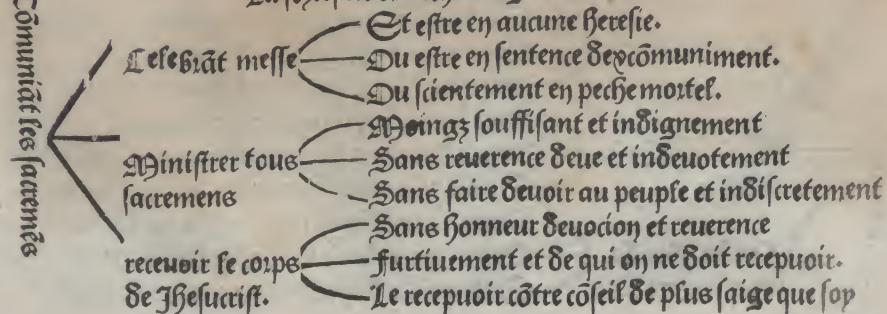 Cõmuniãt les sacremẽs
Celebrãt messe
Et estre en aucune heresie.
Ou estre en sentence dexcõmuniment.
Ou scientement en peche mortel.
Ministrer tous
sacremens
Moingz souffisant et indignement
Sans reuerence deue et indeuotement
Sans faire deuoir au peuple et indiscretement
receuoir le corps
de Jhesucrist.
Sans honneur deuocion et reuerence
furtiuement et de qui on ne doit recepuoir.
Le recepuoir cõtre cõseil de plus saige que soy